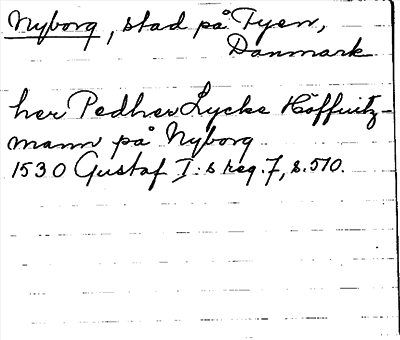 Nyborg, stad på Fyen,
Danmark
her Pedher Lycke Höffuitz-
mann på Nyborg
1530 Gustaf I:s reg. 7, s. 510.